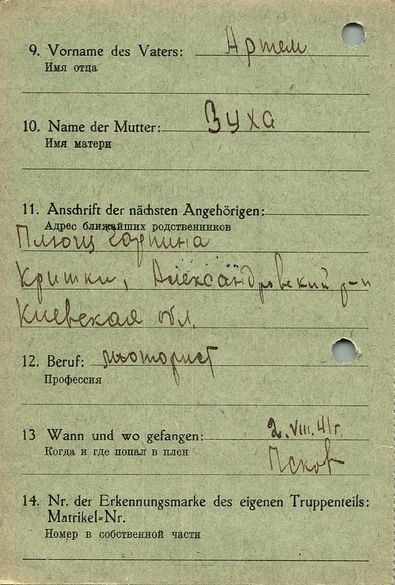 9. Vorname des Vaters: Артем
Имя отца
10. Name der Mutter: Зуха
Имя матери
11. Anschrift der nächsten Angehörigen:
Адрес ближайших родственников
Плющ
Кришки, Александровский р-н
Киевская обл.
12. Beruf: моторист
Профессия
13 Wann und wo gefangen: 2. VIII. 41 г.
Когда и где попал в плен Псков
14. Nr. der Erkennungsmarke des eigenen Truppenteils:
Matrikel-Nr.
Номер в собственной части